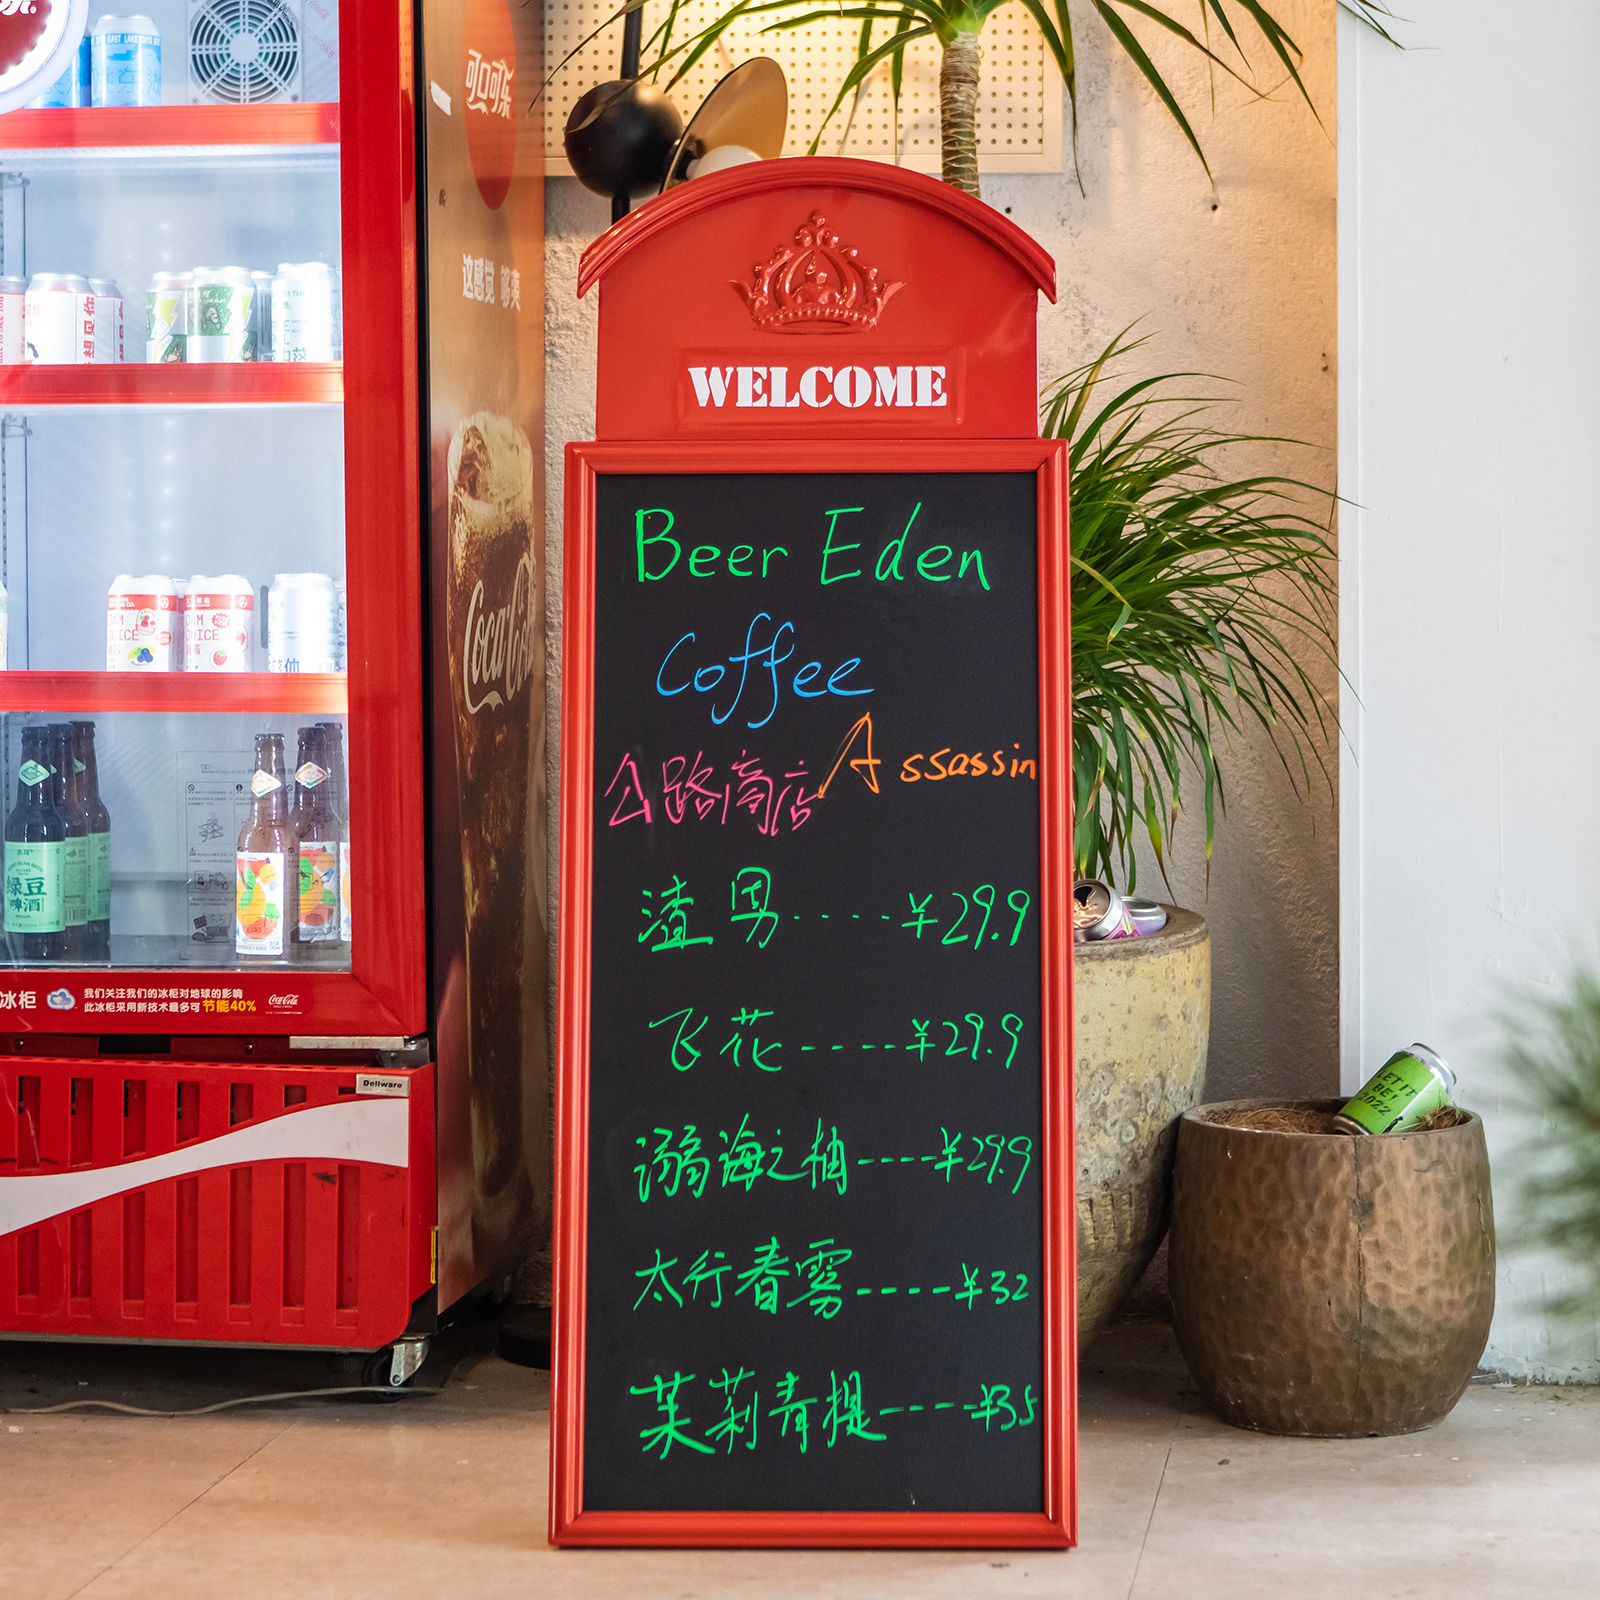 EAST LAKE
可口可乐
这感觉 够爽
Coca-Cola
想见你
JAM
JUICE
JAM
JUICE
绿豆
啤酒
冰柜
我们关注我们的冰柜对地球的影响
此冰柜采用新技术最多可节能40%
Coca-Cola
Dellware
WELCOME
Beer Eden
Coffee
公路商店 Assassin
渣男----¥29.9
飞花----¥29.9
溺海之柚----¥29.9
太行春雾----¥32
茉莉青提----¥35
LET IT
BE!
2022